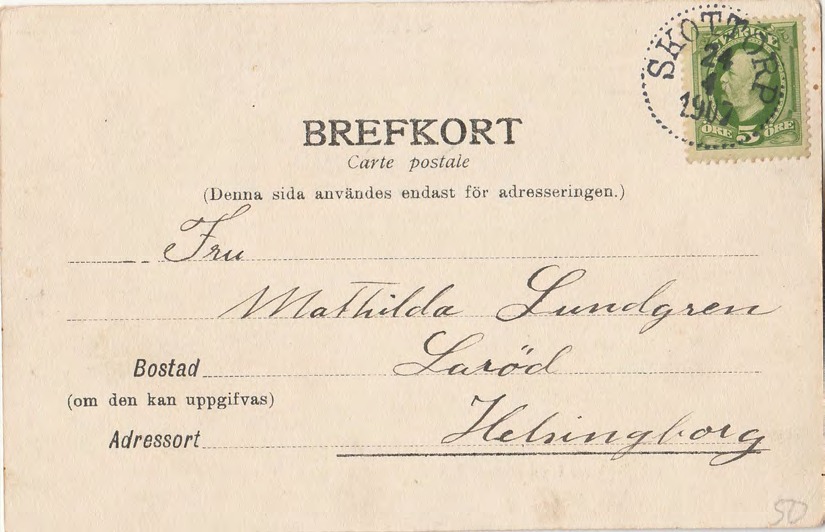 SKOTTORP
24
4
1907
SVERIGE
5
ÖRE ÖRE
BREFKORT
Carte postale
(Denna sida användes endast för adresseringen.)
Fru
Mathilda Lundgren
Bostad Laröd
(om den kan uppgifvas)
Adressort Helsingborg
50